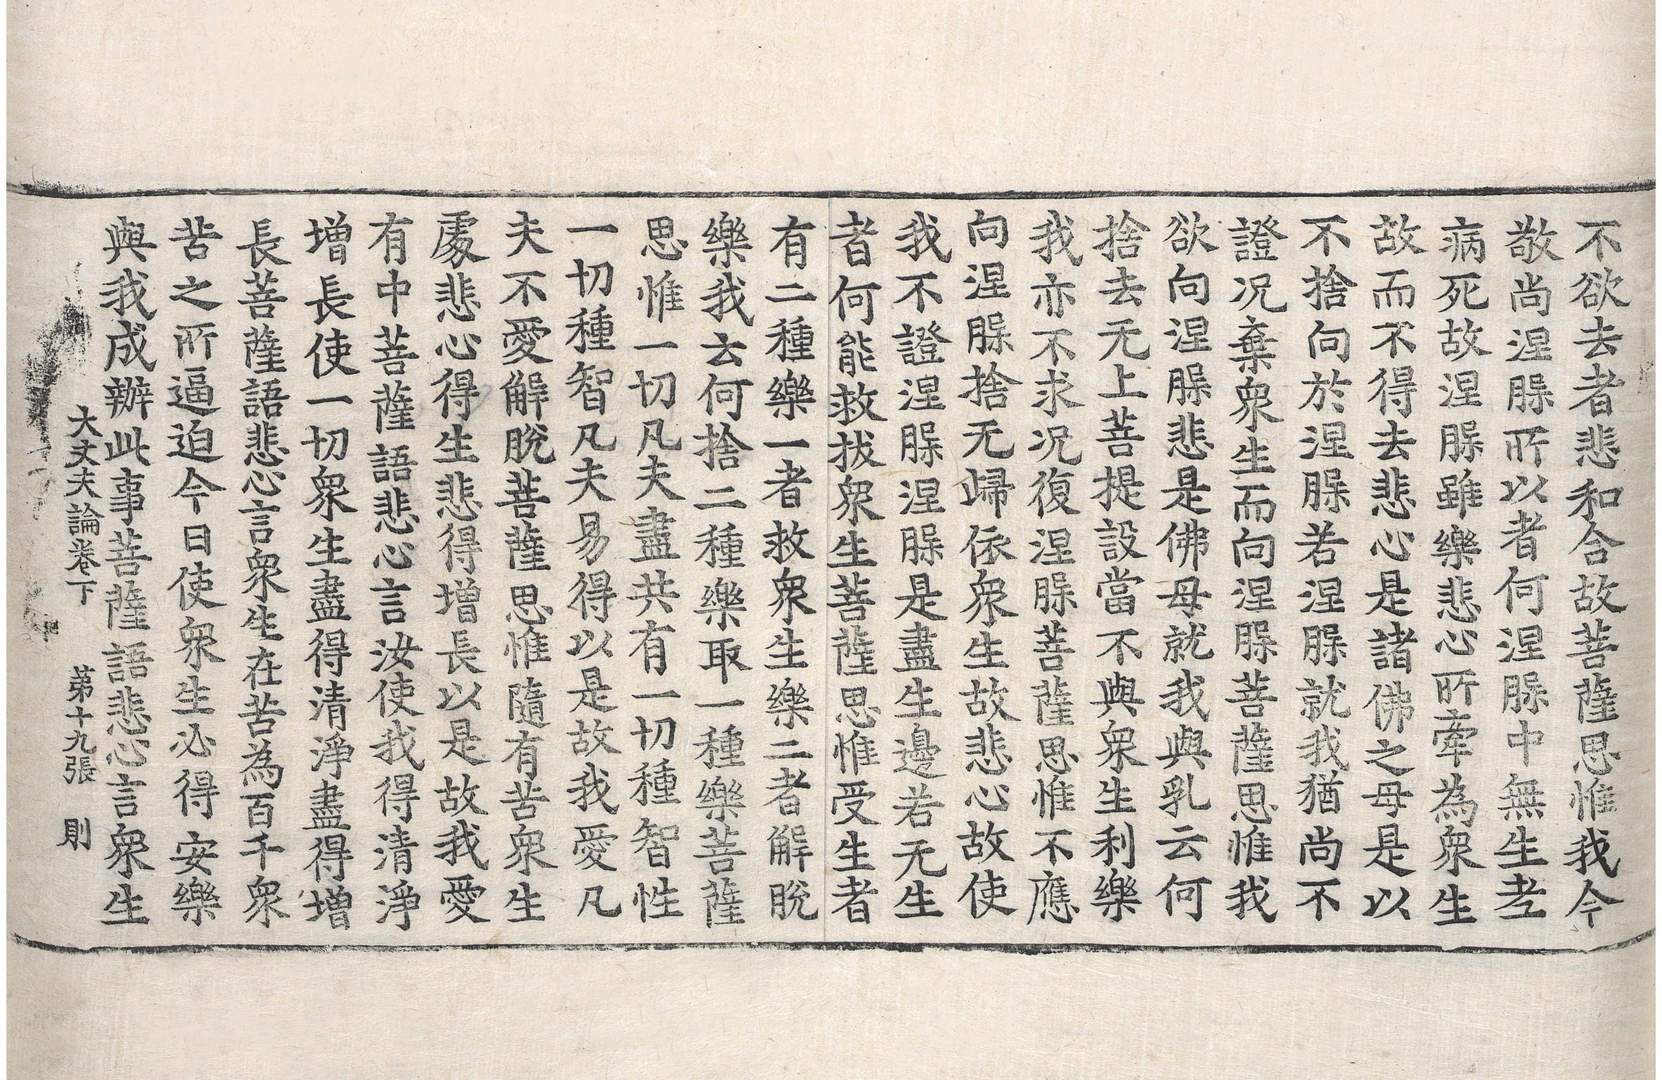 不欲去者悲和合故菩薩思惟我今
敬尚涅槃所以者何涅槃中無生老
病死故涅槃雖樂悲心所牽為衆生
故而不得去悲心是諸佛之母是以
不捨向於涅槃若涅槃就我猶尚不
證况棄衆生而向涅槃菩薩思惟我
欲向涅槃悲是佛母就我與乳云何
捨去无上菩提設當不與衆生利樂
我亦不求况復涅槃菩薩思惟不應
向涅槃捨无歸依衆生故悲心故使
我不證涅槃涅槃是盡生邊若无生
者何能救拔衆生菩薩思惟受生者
有二種樂一者救衆生樂二者解脫
樂我云何捨二種樂取一種樂菩薩
思惟一切凡夫盡共有一切種智性
一切種智凡夫易得以是故我愛凡
夫不愛解脫菩薩思惟隨有苦衆生
處悲心得生悲得增長以是故我愛
有中菩薩語悲心言汝使我得清淨
增長使一切衆生盡得清淨盡得增
長菩薩語悲心言衆生在苦為百千衆
苦之所逼迫今日使衆生必得安樂
與我成辦此事菩薩語悲心言衆生
大丈夫論卷下 第十九張 則